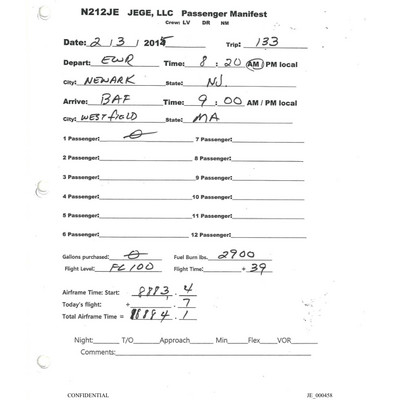 N212JE JEGE, LLC Passenger Manifest
Crew: LV DR NM
Date: 2 / 3 / 2015 Trip: 133
Depart: EWR Time: 8 : 20 AM / PM local
City: NEWARK State: NJ.
Arrive: BAF Time: 9 : 00 AM / PM local
City: WESTfIELD State: MA
1 Passenger: 0 7 Passenger:
2 Passenger: 8 Passenger:
3 Passenger: 9 Passenger:
4 Passenger: 10 Passenger:
5 Passenger: 11 Passenger:
6 Passenger: 12 Passenger:
Gallons purchased: 0 Fuel Burn lbs. 2900
Flight Level: FL100 Flight Time: + 39
Airframe Time: Start: 8883 . 4
Today's flight: + . 7
Total Airframe Time = 8884 . 1
Night: T/O Approach Min Flex VOR
Comments:
CONFIDENTIAL JE_000458